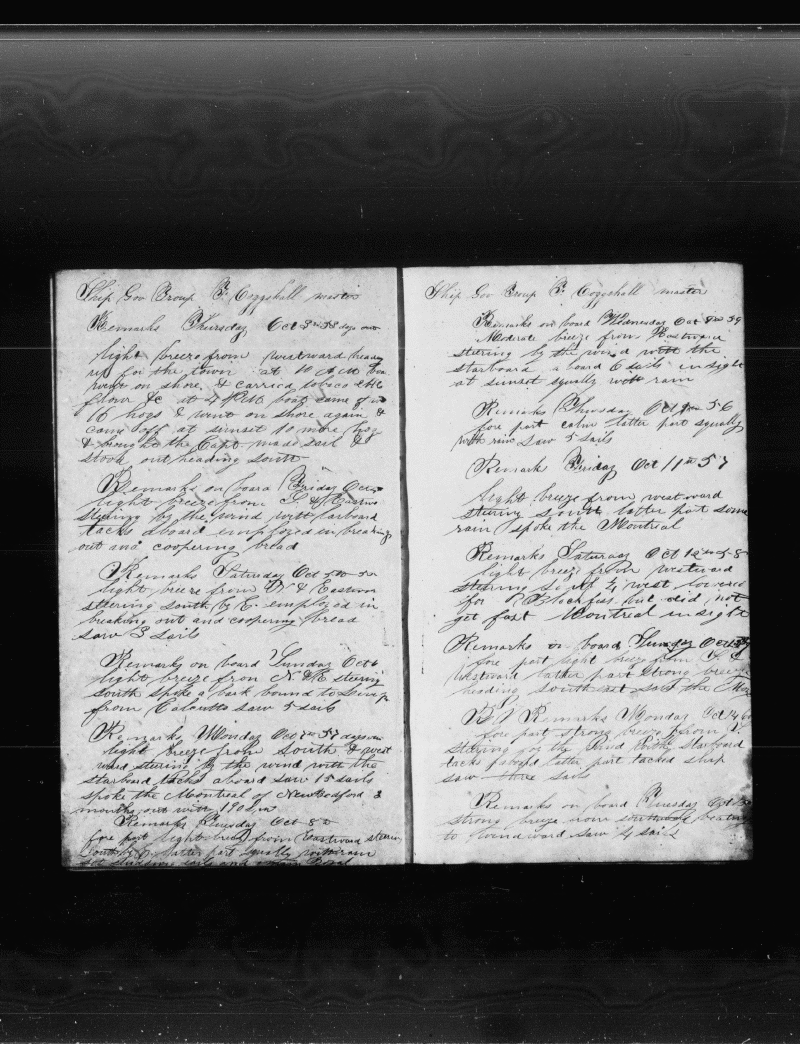 Ship Gov Troup F. Coggshall master
Remarks Thursday Oct 3rd 38 days out
light breeze from westward heavey
up for the town at 10 A M boat
went on shore & carried tobaco &
flour &c at 4 P.M boat came of with
16 hogs & went on shore again &
came off at sunset 10 more hog
& brought the Capt. made sail &
stood out heading south
Remarks on board Friday Oct
light breeze from S & Eastward
steering by the wind with larboard
tacks aboard employed in breaking
out and coopering bread
Remarks Saturday Oct 5th
light breeze from N & Eastern
steering South by E. employed in
breaking out and coopering bread
saw 3 sails
Remarks on board Sunday Oct 6
light breeze from N & E steering
South spoke a bark bound to
from Calcutta saw 5 sail
Remarks Monday Oct 7th days out
light breeze from South & west
ward stering by the wind with the
starboard tacks aboard saw 15 sails
spoke the Montreal of New Bedford 3
months out with 190
Remarks Tuesday Oct 8th
fore part light breeze from Eastward steering
South by E. latter part squally with rain
sails and
Ship Gov Troup F. Coggshall master
Remarks on board Wednesday Oct 9th
Moderate breeze from Eastward
steering by the wind with the
starboard aboard 6 sails in sight
at sunset squally with rain
Remarks Thursday Oct 56
fore part calm latter part squally
with rain saw 5 sails
Remark Friday Oct 11th 57
light breeze from westward
steering south latter part some
rain spoke the Montreal
Remarks Saturday Oct 12th 58
light breeze from westward
steering 1/4 west lowered
for Blackfish but did not
get fast Montreal in sight
Remarks on board Sunday Oct
fore part light breeze from
Westward latter part Strong breeze
heading southeast the
Remarks Monday Oct 14
fore part strong breeze from
steering by the wind with starboard
tacks aboard latter part tacked ship
saw three sails
Remarks on board Tuesday Oct
strong breeze from southward beating
to windward saw 4 sails